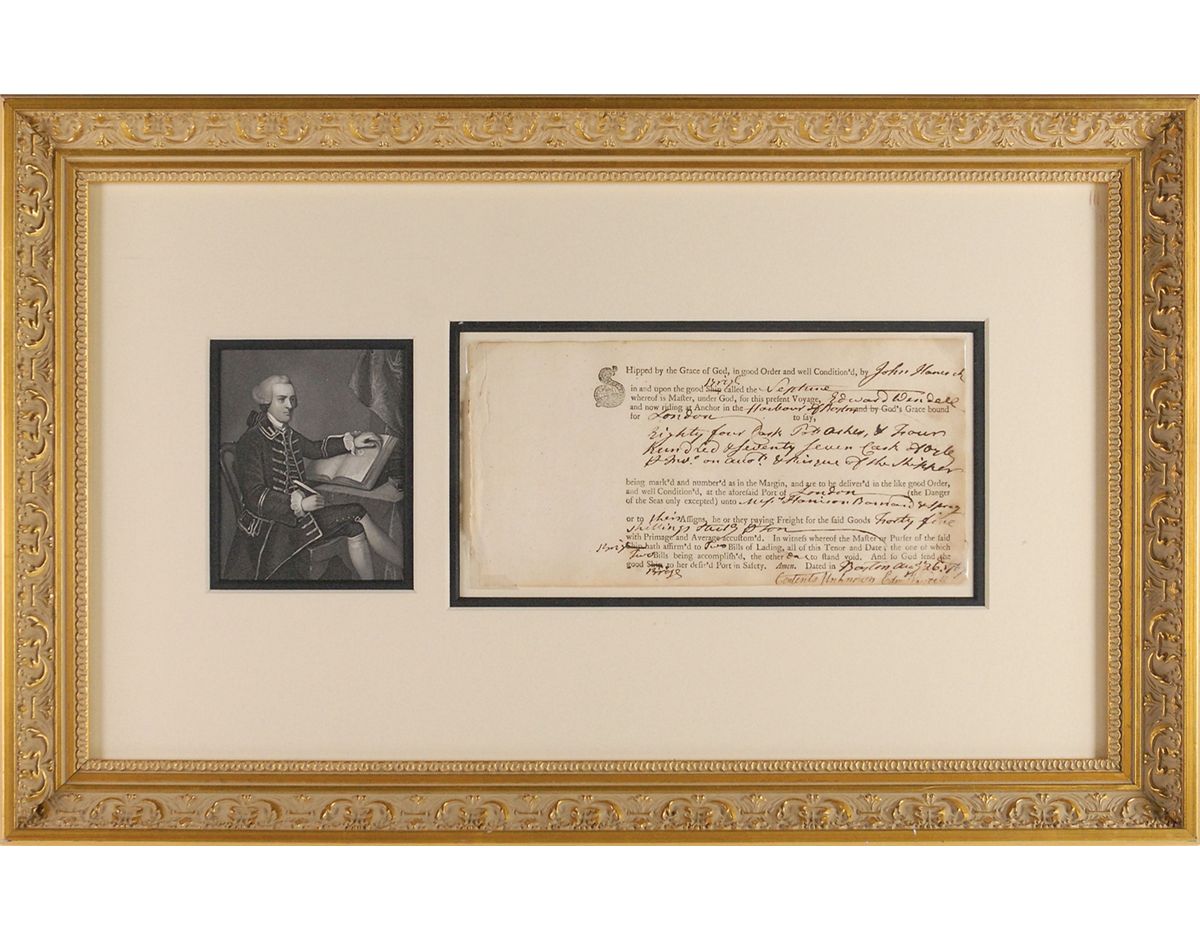 SHipped by the Grace of God, in good Order and well Condition'd, by John Hancock
in and upon the good Ship Brige called the Neptune
whereof is Master, under God, for this present Voyage, Edward Wendell
and now riding at Anchor in the Harbour of Boston and by God's Grace bound
for London to say,
Eighty four Cask Pot Ashes, & Four
Hundred & Seventy Seven Cask
on & risque of the Shipper
being mark'd and number'd as in the Margin, and are to be deliver'd in the like good Order,
and well Condition'd, at the aforesaid Port of London (the Danger
of the Seas only excepted) unto Mess. Harrison Barnard &
or to their Assigns, he or they paying Freight for the said Goods Forty five
shillings
with Primage and Average accustom'd. In witness whereof the Master or Purser of the said
Brige Ship hath affirm'd to Two Bills of Lading, all of this Tenor and Date; the one of which
Two Bills being accomplish'd, the other one to stand void. And so God send the
good Ship Brige to her desir'd Port in Safety. Amen. Dated in Boston Augt 26.
Contents Unknown Edw Wendell